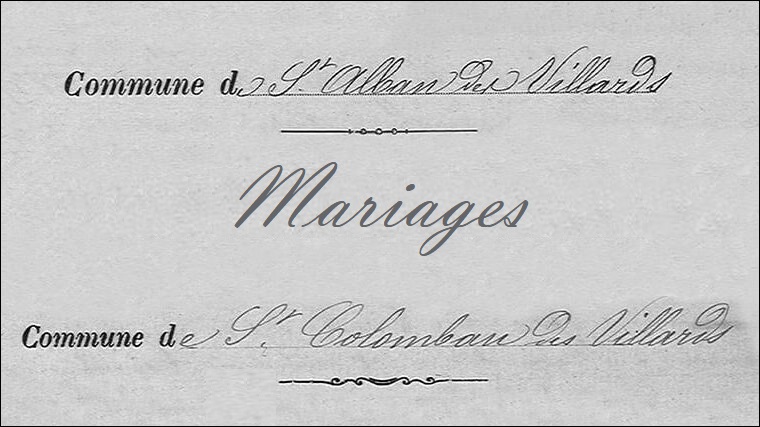 Commune de St. Alban des Villards
Mariages
Commune de St. Colomban des Villards